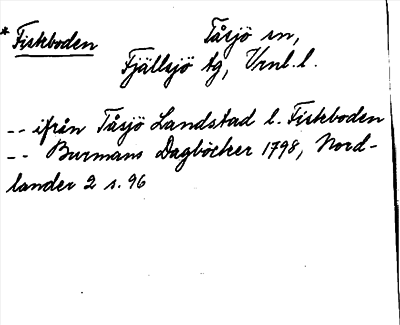 *Fiskboden Tåsjö sn,
Fjällsjö tg, Vnl. l.
-- ifrån Tåsjö Landstad l. Fiskboden
-- Burmans Dagböcker 1798, Nord-
lander 2 s. 96